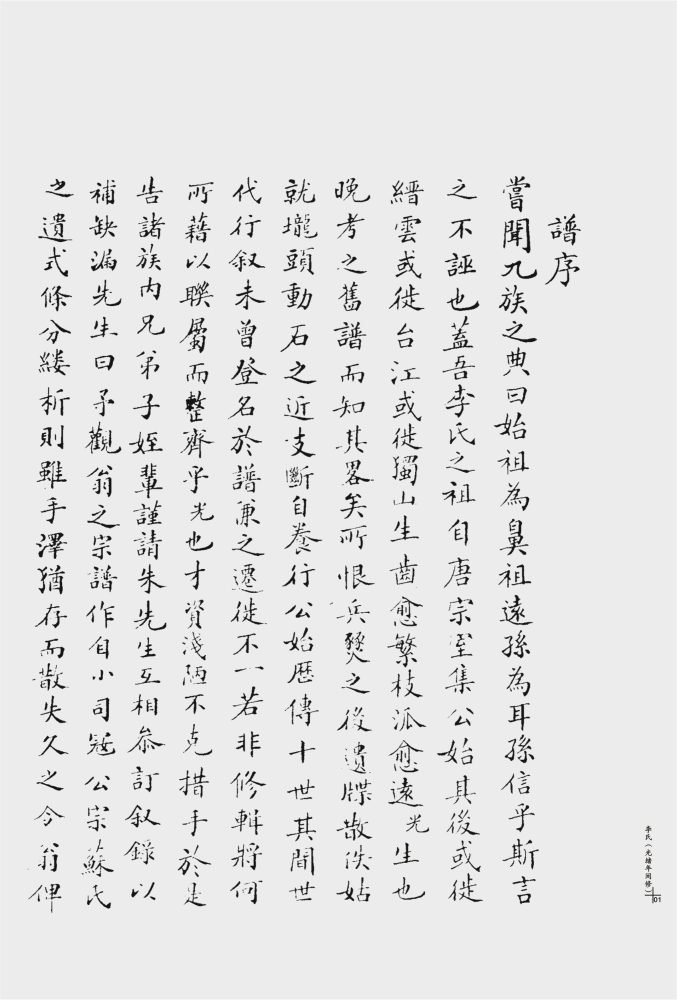 譜序
嘗聞九族之典曰始祖為鼻祖遠孫為耳孫信乎斯言
之不誣也蓋吾李氏之祖自唐宗室集公始其後或徙
縉雲或徙台江或徙獨山生齒愈繁枝派愈遠光生也
晚考之舊譜而知其畧矣所恨兵燹之後遺牒散佚姑
就壠頭動石之近支斷自養行公始歷傳十世其間世
代行叙未曾登名於譜兼之遷徙不一若非修輯將何
所藉以聯屬而整齊乎光也才資淺陋不克措手於是
告諸族內兄弟子姪輩謹請朱先生互相叅訂叙錄以
補缺漏先生曰予觀翁之宗譜作自小司冦公宗蘇氏
之遺式條分縷析則雖手澤猶存而散失久之今翁俾
李氏(光緒年间修)
01